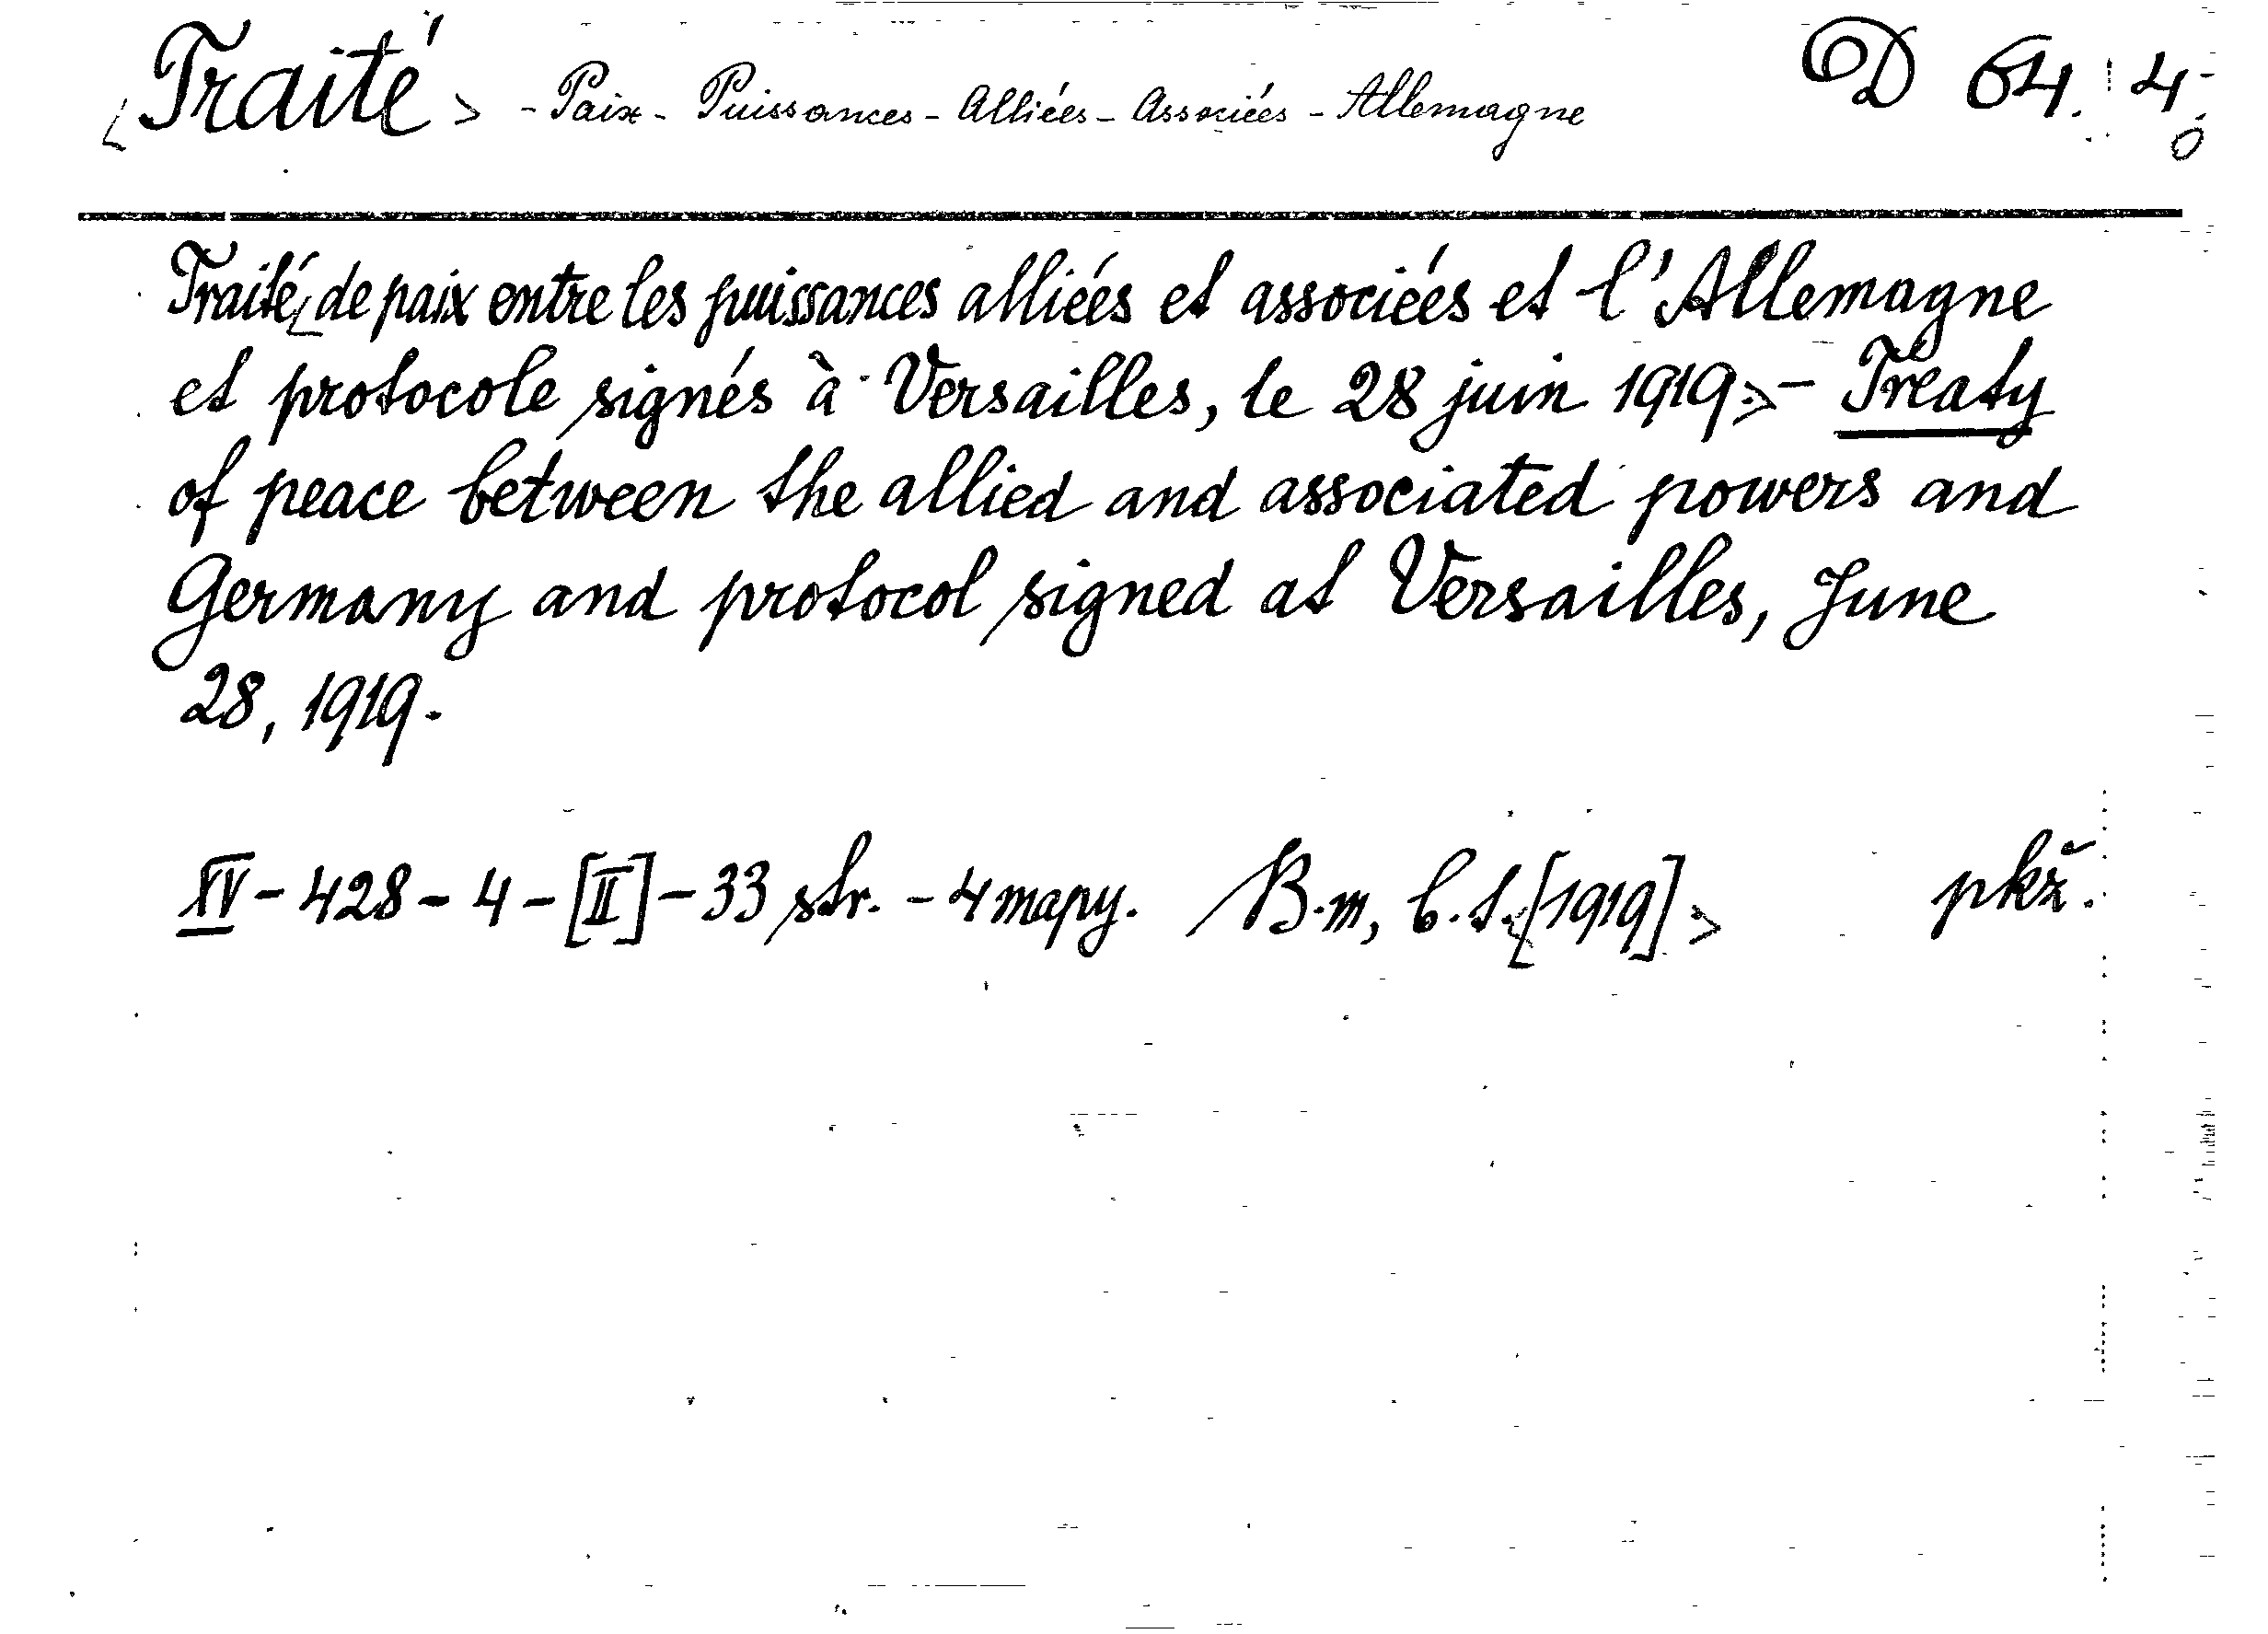 <Traité> - Paix - Puissances - Alliées - Associées - Allemagne D 64. 4.
Traité <de paix entre les puissances alliées et associées et l'Allemagne
et protocole signés à Versailles, le 28 juin 1919.> - Treaty
of peace between the allied and associated powers and
Germany and protocol signed at Versailles, June
28, 1919.
XV - 428 - 4 - [II] - 33 str. - 4 mapy. B.m, b.t. <[1919]> pkž.